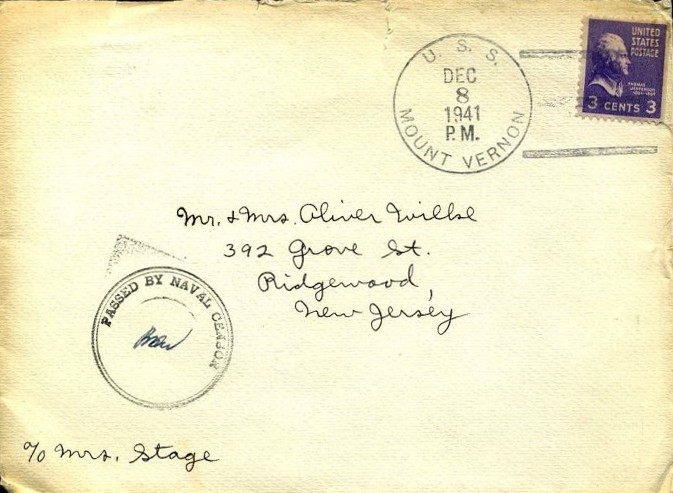 U. S. S.
DEC
8
1941
P.M.
MOUNT VERNON
UNITED
STATES
POSTAGE
THOMAS
JEFFERSON
3 CENTS 3
Mr. & Mrs. Oliver
392 Grove St.
Ridgewood,
New Jersey
PASSED BY NAVAL CENSOR
c/o Mrs. Stage